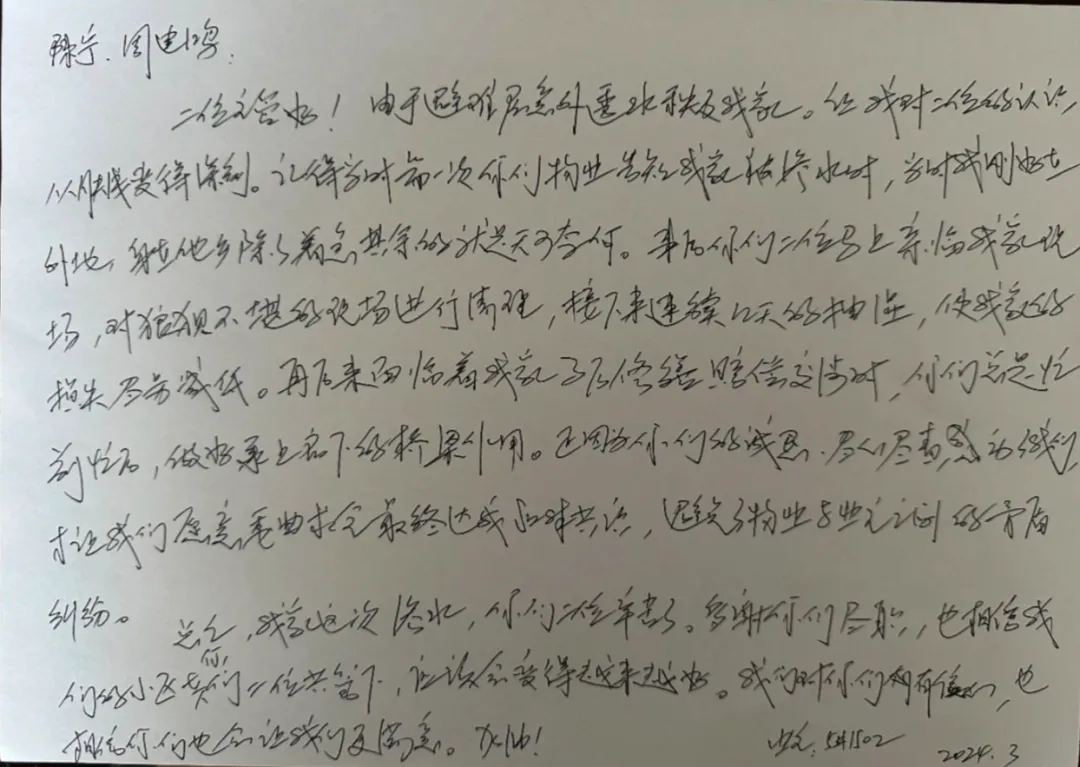 陈宁、周建鸿:
二位主管好！由于避难层意外遭水殃及我家。让我对二位的认识,
从肤浅变得深刻。记得当时第一次你们物业告知我家被渗水时，当时我刚好在
外地，身在他乡除了着急其余的就是无可奈何。事后你们二位马上亲临我家现
场，对狼狈不堪的现场进行清理，接下来连续12天的抽湿，使我家的
损失尽量减低。再后来面临着我家了后修缮赔偿交涉时，你们总是忙
前忙后，做好承上启下的桥梁作用。正因为你们的诚恳、尽心尽责感动我们,
才让我们愿意委曲求全最终达成共识，避免了物业与业主之间的矛盾
纠纷。
总之，我家这次渗水，你们二位辛苦了。多谢你们尽职，也相信我
们的小区在你们二位共管下，应该会变得越来越好。我们对你们有信心，也
相信你们也会让我们更满意。加油！
业主：5H1502
2024.3